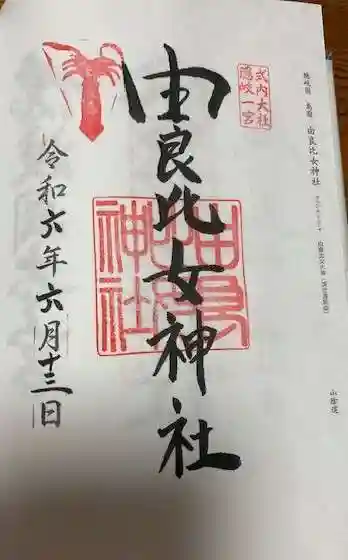 隠岐国 島前 由良比女神社
山陰道
式内大社
隠岐一宮
由良比女神社
由良比女神社
令和六年六月十三日